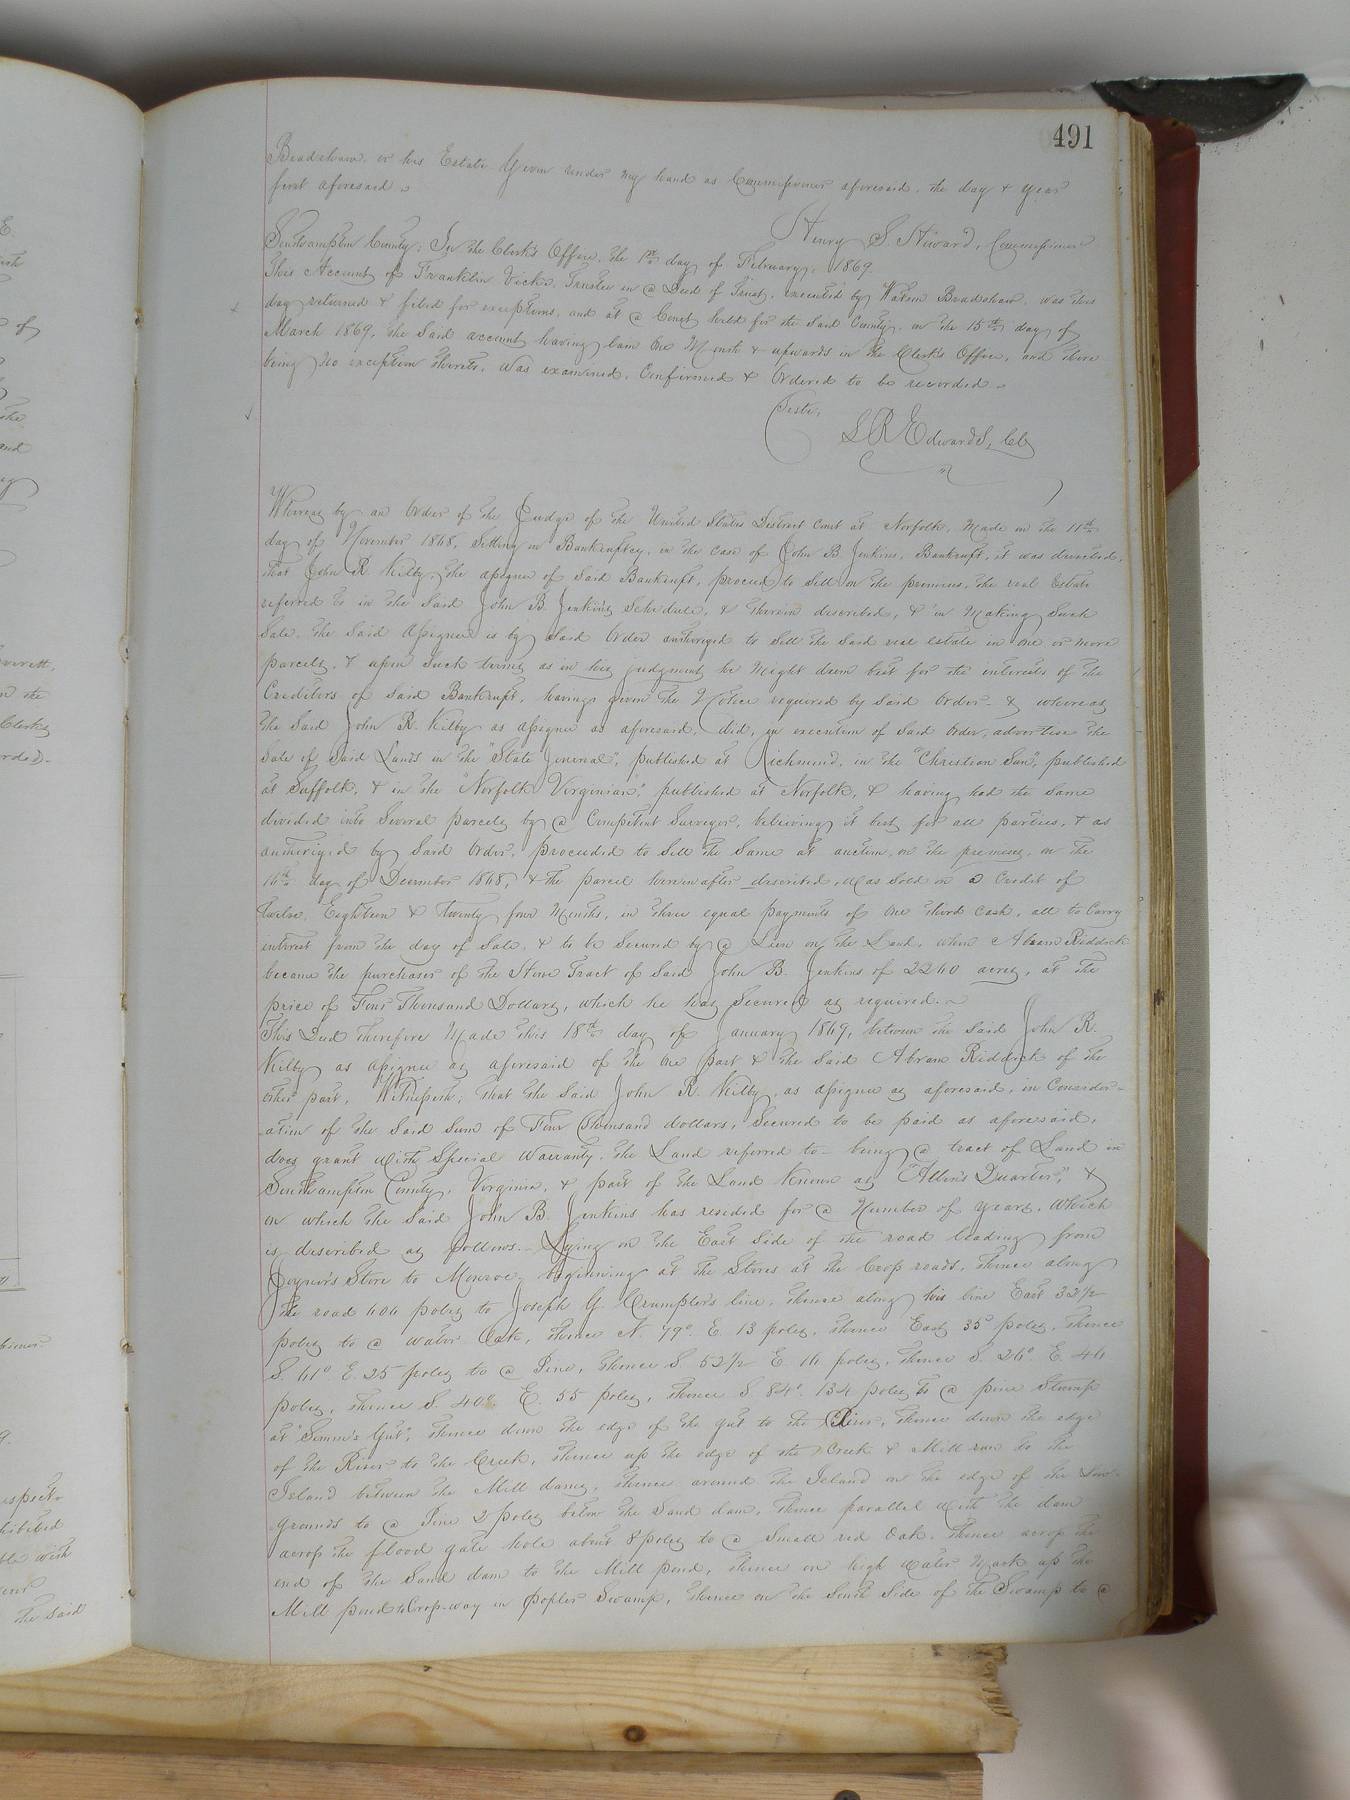 491
Bradshaw or his Estate. Given under my hand as Commissioner aforesaid, the day & year
first aforesaid.
Henry S. Commissioner
Southampton County: In the Clerk's Office, the 1st day of February, 1869.
This Account of Franklin Vicks, Trustee in a Deed of Trust, executed by Watson Bradshaw, was this
day returned & filed for exceptions, and at a Court held for the said County, on the 15th day of
March 1869, the said account having lain One Month & upwards in the Clerk's Office, and there
being no exception thereto, was examined, Confirmed & Ordered to be recorded.
Teste,
L R Edwards, Clk
Whereas by an Order of the Judge of the United States District Court at Norfolk, Made in the 11th
day of November 1868, Sitting in Bankruptcy, in the case of John B. Jenkins, Bankrupt, it was directed,
that John R Kilby, the assignee of Said Bankrupt, proceed to Sell on the premises, the real Estate
referred to in the Said John B. Jenkins Schedule, & therein described, & in Making Such
Sale, the Said Assignee is by Said Order authorized to Sell the Said real estate in one or more
parcels, & upon Such terms as in his judgment he Might deem best for the interests of the
Creditors of Said Bankrupt, having given the Notice required by Said Order. & whereas
the Said John R. Kilby as assignee as aforesaid, did, in execution of Said Order, advertise the
Sale of Said Lands in the "State Journal", published at Richmond, in the "Christian Sun", published
at Suffolk, & in the "Norfolk Virginian," published at Norfolk, & having had the same
divided into Several parcels by a Competent Surveyor, believing it best for all parties, & as
authorized by Said Order, proceeded to Sell the Same at auction, on the premises, on the
16th day of December 1868, & the parcel hereinafter described, was Sold on a Credit of
Twelve, Eighteen & twenty four Months, in three equal payments of One third Cash, all to Carry
interest from the day of Sale, & to be Secured by a Lien on the Land, when Abram Riddick
became the purchaser of the Store Tract of Said John B. Jenkins of 2260 acres, at the
price of Four Thousand Dollars, which he has Secured as required.
This Deed therefore Made this 18th day of January 1869, between the Said John R.
Kilby as assignee as aforesaid of the One part & the Said Abram Riddick of the
other part, Witnesseth, that the Said John R. Kilby, as assignee as aforesaid, in Consider-
ation of the Said Sum of Four Thousand dollars, Secured to be paid as aforesaid,
does grant with Special Warranty, the Land referred to - being a tract of Land in
Southampton County, Virginia, & part of the Land Known as "Allen's Quarter," &
on which the Said John B. Jenkins has resided for a Number of years, which
is described as follows. Lying on the East Side of the road leading from
Joyner's Store to Monroe, beginning at the Stores at the Cross roads, thence along
the road 404 poles to Joseph G. Crumpler's line, thence along his line East 32½
poles to a water Oak, thence N. 79° E. 13 poles, thence East 35 poles, thence
S. 61° E. 25 poles to a Pine, thence S. 52½ E. 16 poles, thence S. 26° E. 44
poles, thence S. 40° E. 55 poles, thence S. 84° 134 poles to a pine Stump
at Gut", thence down the edge of the gut to the River, thence down the edge
of the River to the Creek, thence up the edge of the Creek & Mill run to the
Island between the Mill dams, thence around the Island on the edge of the Low-
grounds to a Pine 2 poles below the Sand dam, thence parallel with the dam
across the flood gate hole about 8 poles to a Small red Oak, thence across the
end of the Sand dam to the Mill pond, thence on high water Mark up the
Mill pond to Cross-way in Popler Swamp, thence on the South Side of the Swamp to a